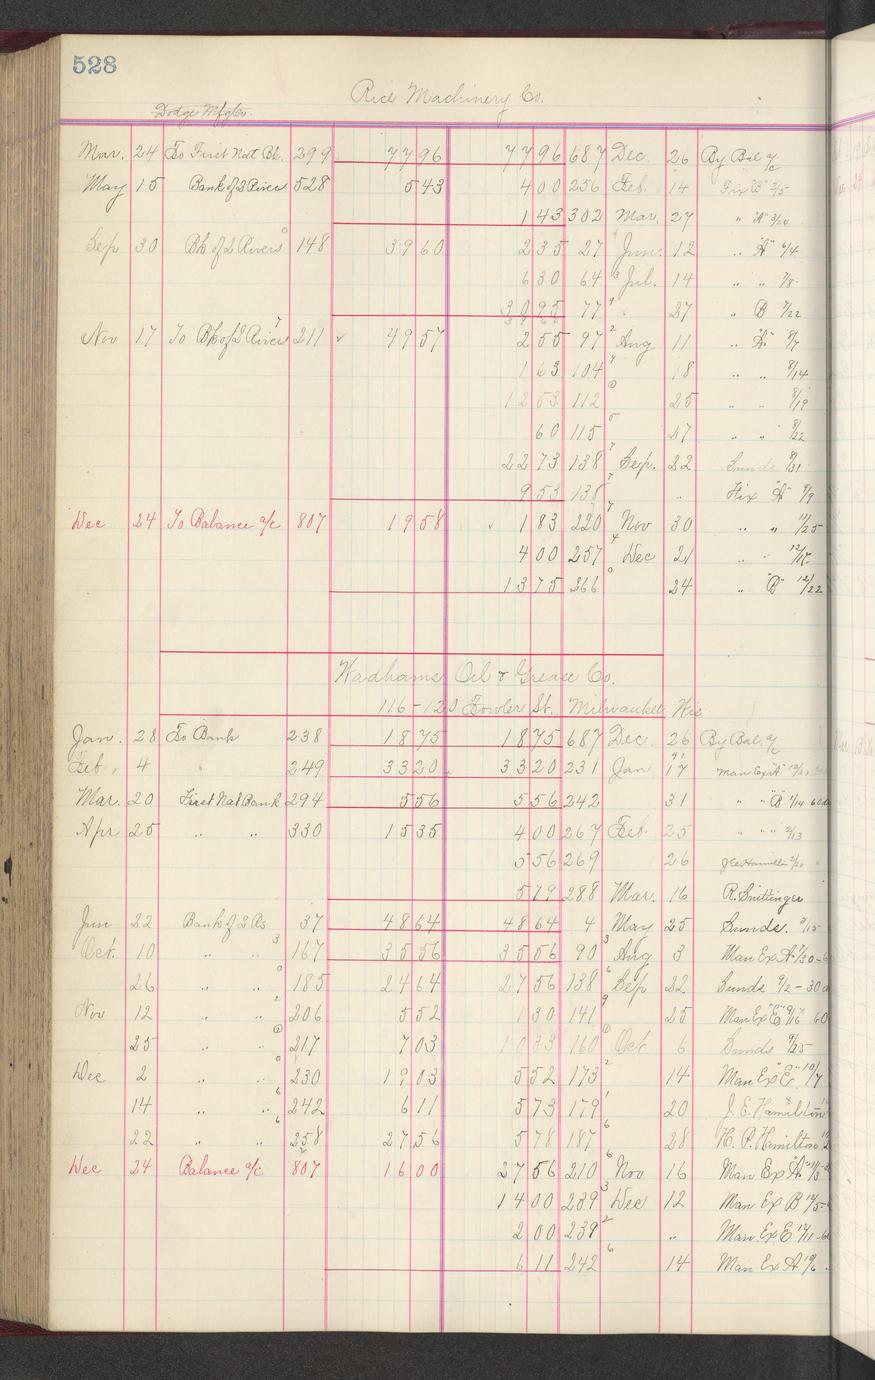 528
Rice Machinery Co.
Dodge Mfg Co.
Mar. 24 To First Nat Bk. 299 77 96 77 96 687 Dec 26 By Bal a/c
May 15 Bank of 2 Rivers 528 5 43 4 00 256 Feb. 14 Fix "B" 2/5
1 43 302 Mar. 27 " "A" 3/20
Sep 30 Bk of 2 Rivers 148 39 60 2 35 27 Jun. 12 " "A" 6/4
6 30 64 Jul. 14 " " 7/8
77 " 27 " B 7/22
Nov 17 To Bk of 2 Rivers 211 49 57 2 55 97 Aug 11 " "A" 8/7
1 63 104 18 " " 8/14
12 53 112 25 " " 8/19
60 115 27 " " 8/22
22 73 138 Sep. 22 Sunds 8/31
9 53 138 " Fix "A" 9/9
Dec 24 To Balance a/c 807 19 58 1 83 220 Nov 30 " " 11/25
4 00 257 Dec 21 " "
13 75 266 24 " "B" 12/22
Wadhams Oil & Grease Co.
116-120 Fowler St., Milwaukee Wis
Jan. 28 To Bank 238 18 75 18 75 687 Dec. 26 By Bal. a/c
Feb. 4 " 249 33 20 33 20 231 Jan 17 Man Ex "A"
Mar. 20 First Nat Bank 294 5 56 5 56 242 31 " "B" 1/14
Apr 25 " " 330 15 35 4 00 267 Feb. 25 " " " 2/13
5 56 269 26 J E Hamilton
5 79 288 Mar. 16 R. Suettinger
Jun 22 Bank of 2 Rs 37 48 64 48 64 4 May 25 Sunds.
Oct. 10 " " 167 35 56 35 56 90 Aug 3 Man Ex A 7/30
26 " " 185 24 64 27 56 138 Sep 22 Sunds 9/2 - 30
Nov 12 " " 206 5 52 1 30 141 25 Man Ex "E" 9/16 60
25 " " 217 7 03 10 33 160 Oct 6 Sunds 9/25
Dec 2 " " 230 19 03 5 52 173 14 Man Ex "E" 10/7
14 " " 242 6 11 5 73 179 20 J. E. Hamilton
22 " " 258 27 56 5 78 187 28 H. P. Hamilton
Dec 24 Balance a/c 807 16 00 27 56 210 Nov 16 Man Ex "A"
14 00 239 Dec 12 Man Ex B
2 00 239 " Man. Ex E 12/11
6 11 242 14 Man Ex A